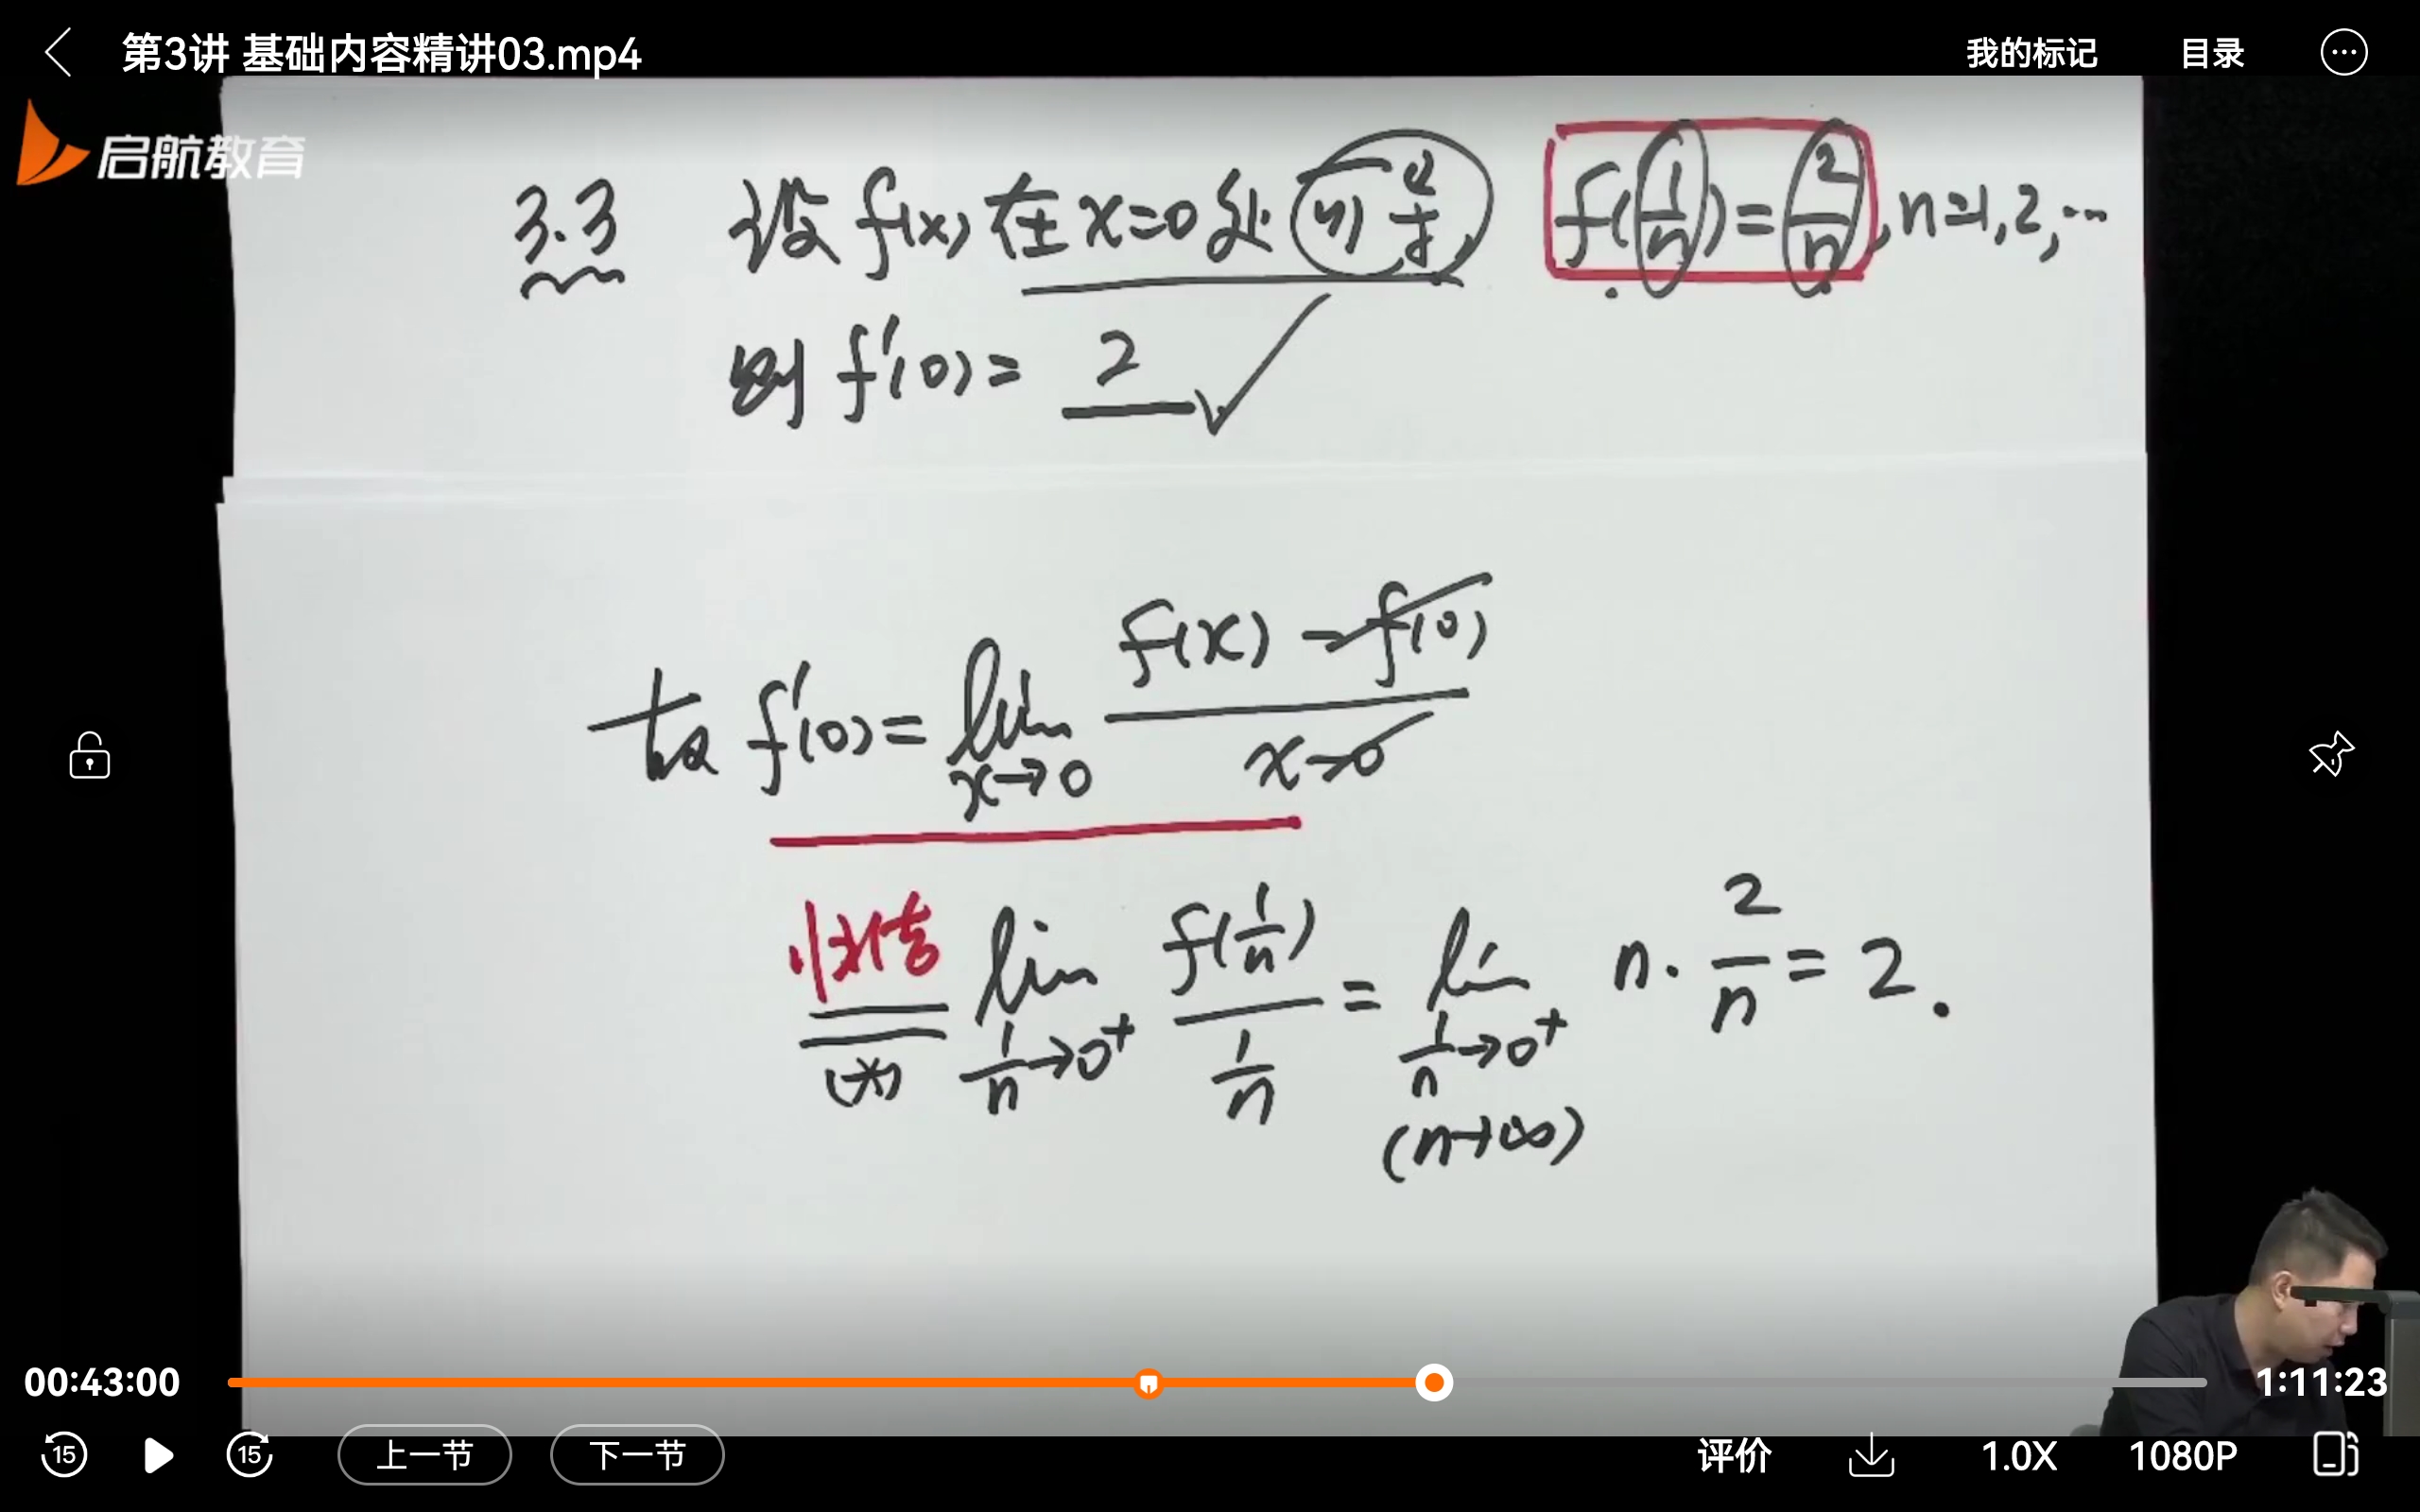 第3讲 基础内容精讲03.mp4 我的标记 目录
启航教育
3.3 设 f(x) 在 x=0 处 可导 f(1/n)=2/n, n=1,2,…
则 f'(0)= 2 √
故 f'(0)= lim x→0 (f(x)-f(0))/(x-0)
归结 (*) lim 1/n→0⁺ f(1/n)/(1/n) = lim 1/n→0⁺ (n→∞) n·2/n = 2.
00:43:00 1:11:23
15 15 上一节 下一节 评价 1.0X 1080P